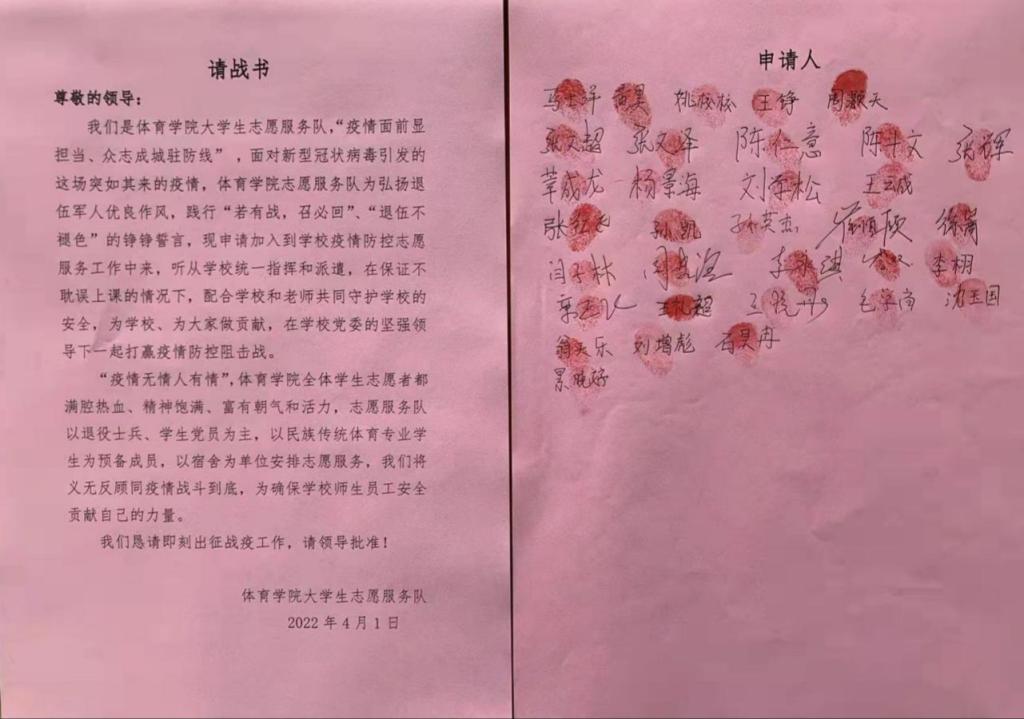 请战书
尊敬的领导：
我们是体育学院大学生志愿服务队，“疫情面前显
担当、众志成城驻防线”，面对新型冠状病毒引发的
这场突如其来的疫情，体育学院志愿服务队为弘扬退
伍军人优良作风，践行“若有战，召必回”、“退伍不
褪色”的铮铮誓言，现申请加入到学校疫情防控志愿
服务工作中来，听从学校统一指挥和派遣，在保证不
耽误上课的情况下，配合学校和老师共同守护学校的
安全，为学校、为大家做贡献，在学校党委的坚强领
导下一起打赢疫情防控阻击战。
“疫情无情人有情”，体育学院全体学生志愿者都
满腔热血、精神饱满、富有朝气和活力，志愿服务队
以退役士兵、学生党员为主，以民族传统体育专业学
生为预备成员，以宿舍为单位安排志愿服务，我们将
义无反顾同疫情战斗到底，为确保学校师生员工安全
贡献自己的力量。
我们恳请即刻出征战疫工作，请领导批准！
体育学院大学生志愿服务队
2022 年 4 月 1 日
申请人
黄昊 姚校校 王铮 周颢天
张文超 张文泽 陈仁意 陈斗文 张辉
莘成龙 杨景海 刘学松 王云成
孙凯 孙英杰
闫子林 李栩
王凡超 沈玉国
翁天乐 刘增彪 石昊冉
景晓婷